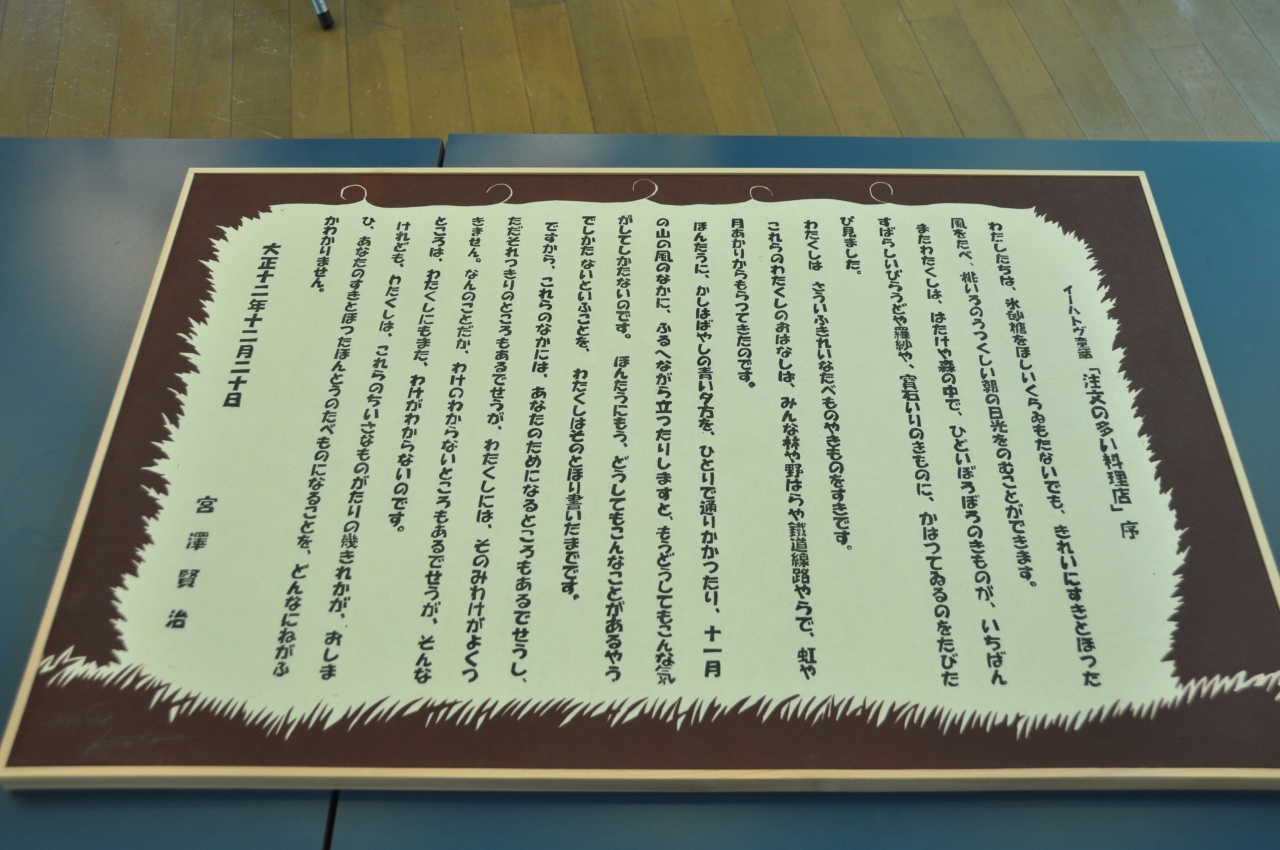 イーハトヴ童話 「注文の多い料理店」 序
わたしたちは、氷砂糖をほしいくらゐもたないでも、きれいにすきとほつた
風をたべ、桃いろのうつくしい朝の日光をのむことができます。
またわたくしは、はたけや森の中で、ひどいぼろぼろのきものが、いちばん
すばらしいびらうどや羅紗や、宝石いりのきものに、かはつてゐるのをたびた
び見ました。
わたくしは さういふきれいなたべものやきものをすきです。
これらのわたくしのおはなしは、みんな林や野はらや鐵道線路やらで、虹や
月あかりからもらつてきたのです。
ほんたうに、かしはばやしの青い夕方を、ひとりで通りかかつたり、十一月
の山の風のなかに、ふるへながら立つたりしますと、もうどうしてもこんな気
がしてしかたないのです。 ほんたうにもう、どうしてもこんなことがあるやう
でしかたないといふことを、 わたくしはそのとほり書いたまでです。
ですから、これらのなかには、あなたのためになるところもあるでせうし、
ただそれつきりのところもあるでせうが、わたくしには、そのみわけがよくつ
きません。なんのことだか、わけのわからないところもあるでせうが、そんな
ところは、わたくしにもまた、わけがわからないのです。
けれども、わたくしは、これらのちいさなものがたりの幾きれかが、おしま
ひ、あなたのすきとほつたほんとうのたべものになることを、どんなにねがふ
かわかりません。
大正十二年十二月二十日
宮澤賢治